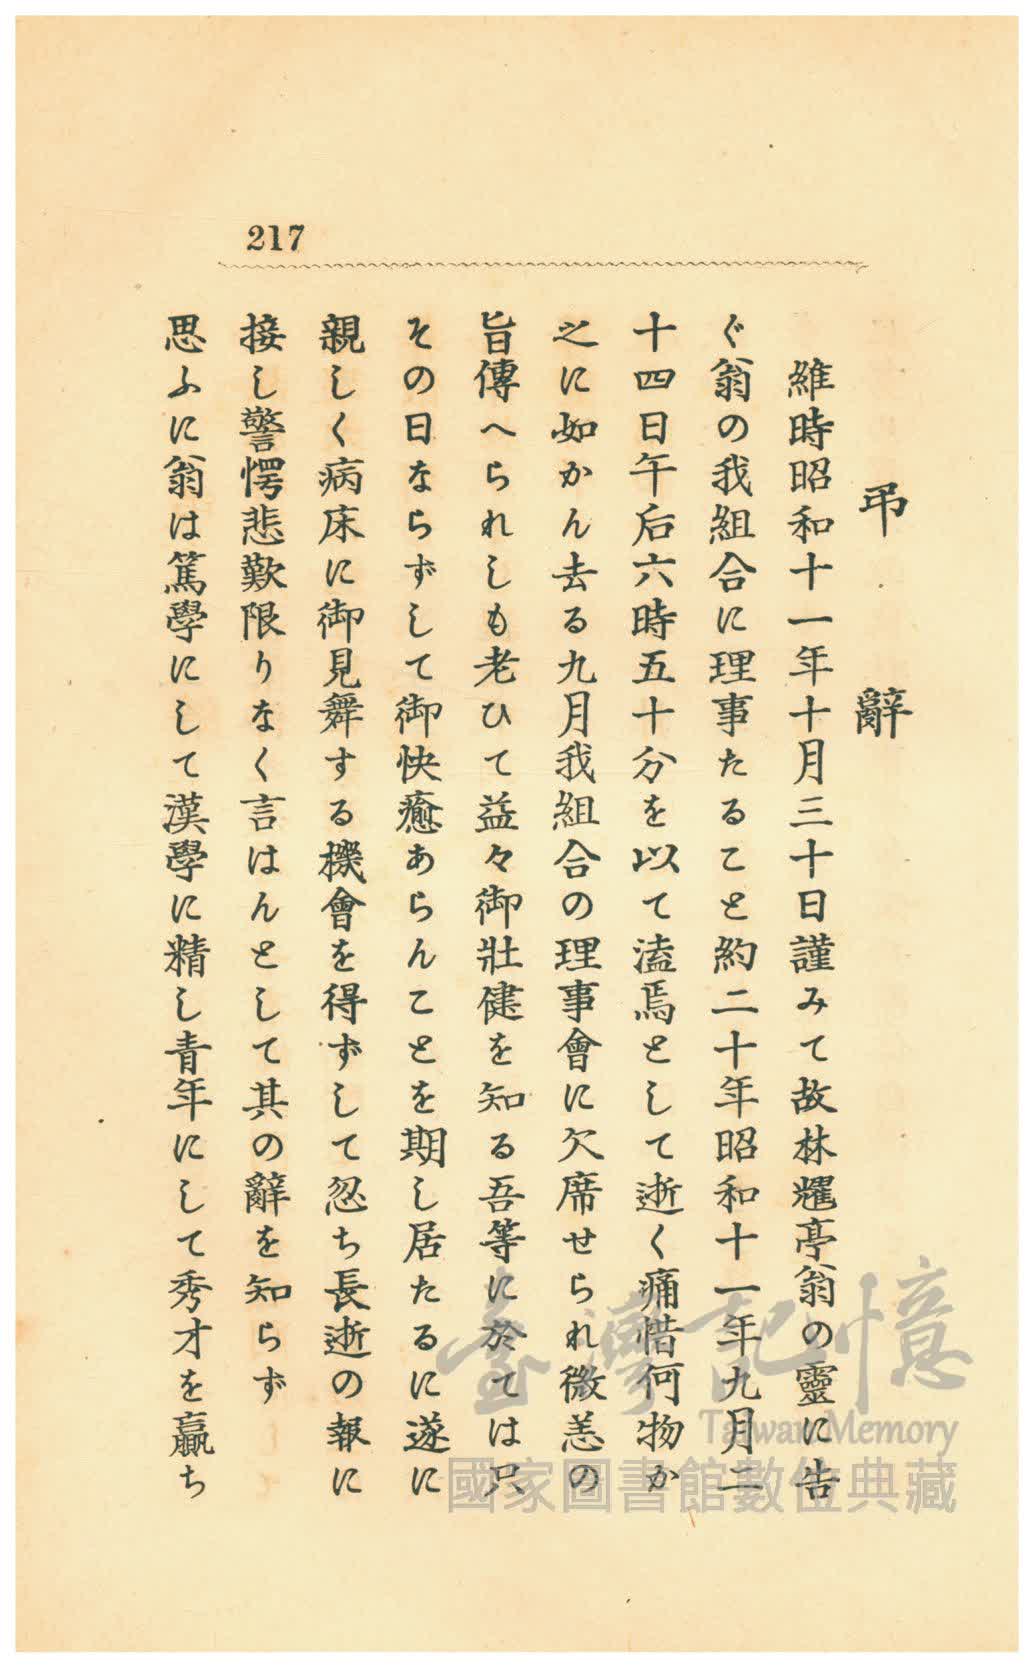 217
弔辭
維時昭和十一年十月三十日謹みて故林耀亭翁の靈に告
ぐ翁の我組合に理事たること約二十年昭和十一年九月二
十四日午后六時五十分を以て溘焉として逝く痛惜何物か
之に如かん去る九月我組合の理事會に欠席せられ微恙の
旨傳へられしも老ひて益々御壯健を知る吾等に於ては只
その日ならずして御快癒あらんことを期し居たるに遂に
親しく病床に御見舞する機會を得ずして忽ち長逝の報に
接し警愕悲歎限りなく言はんとして其の辭を知らず
思ふに翁は篤學にして漢學に精し青年にして秀才を贏ち
臺灣記憶
Taiwan Memory
國家圖書館數位典藏